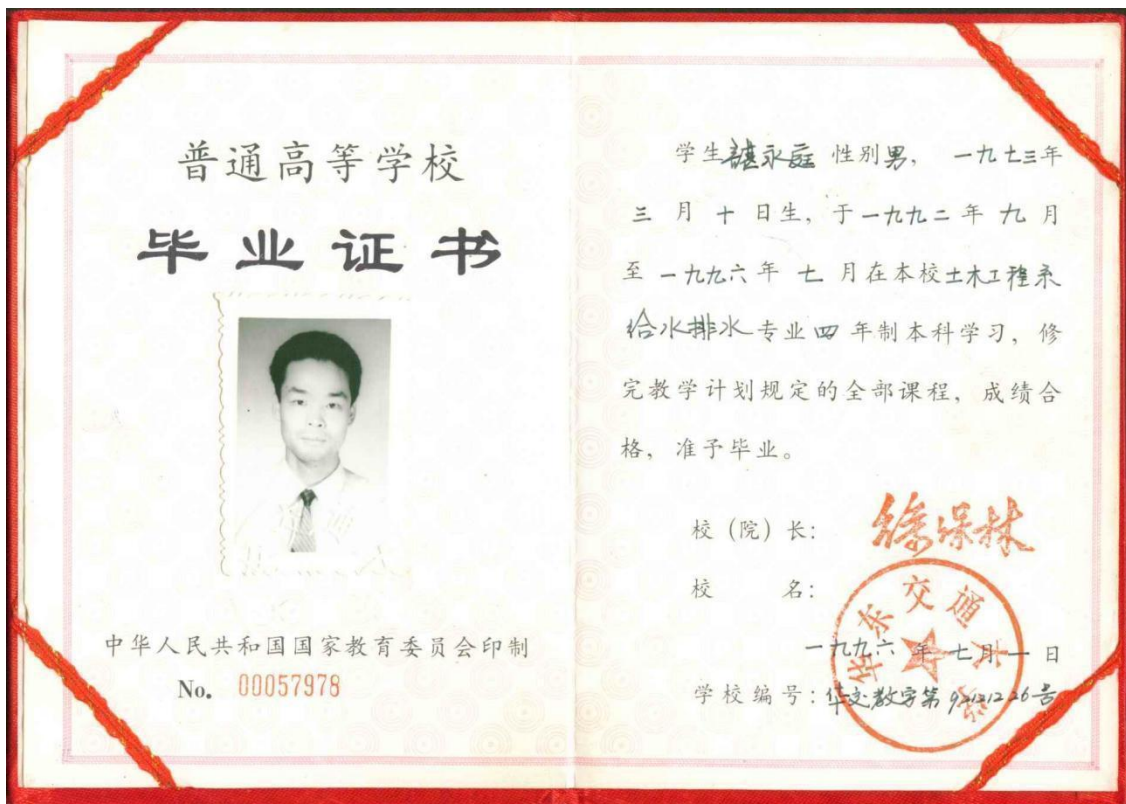 普通高等学校
毕业证书
中华人民共和国国家教育委员会印制
No. 00057978
学生谌永庭 性别男, 一九七三年
三月十日生, 于一九九二年九月
至一九九六年七月在本校土木工程系
给水排水专业四年制本科学习, 修
完教学计划规定的全部课程, 成绩合
格, 准予毕业。
校(院)长: 徐保林
校名:
华东交通大学
一九九六年七月一日
学校编号: 华交教字第9212126号